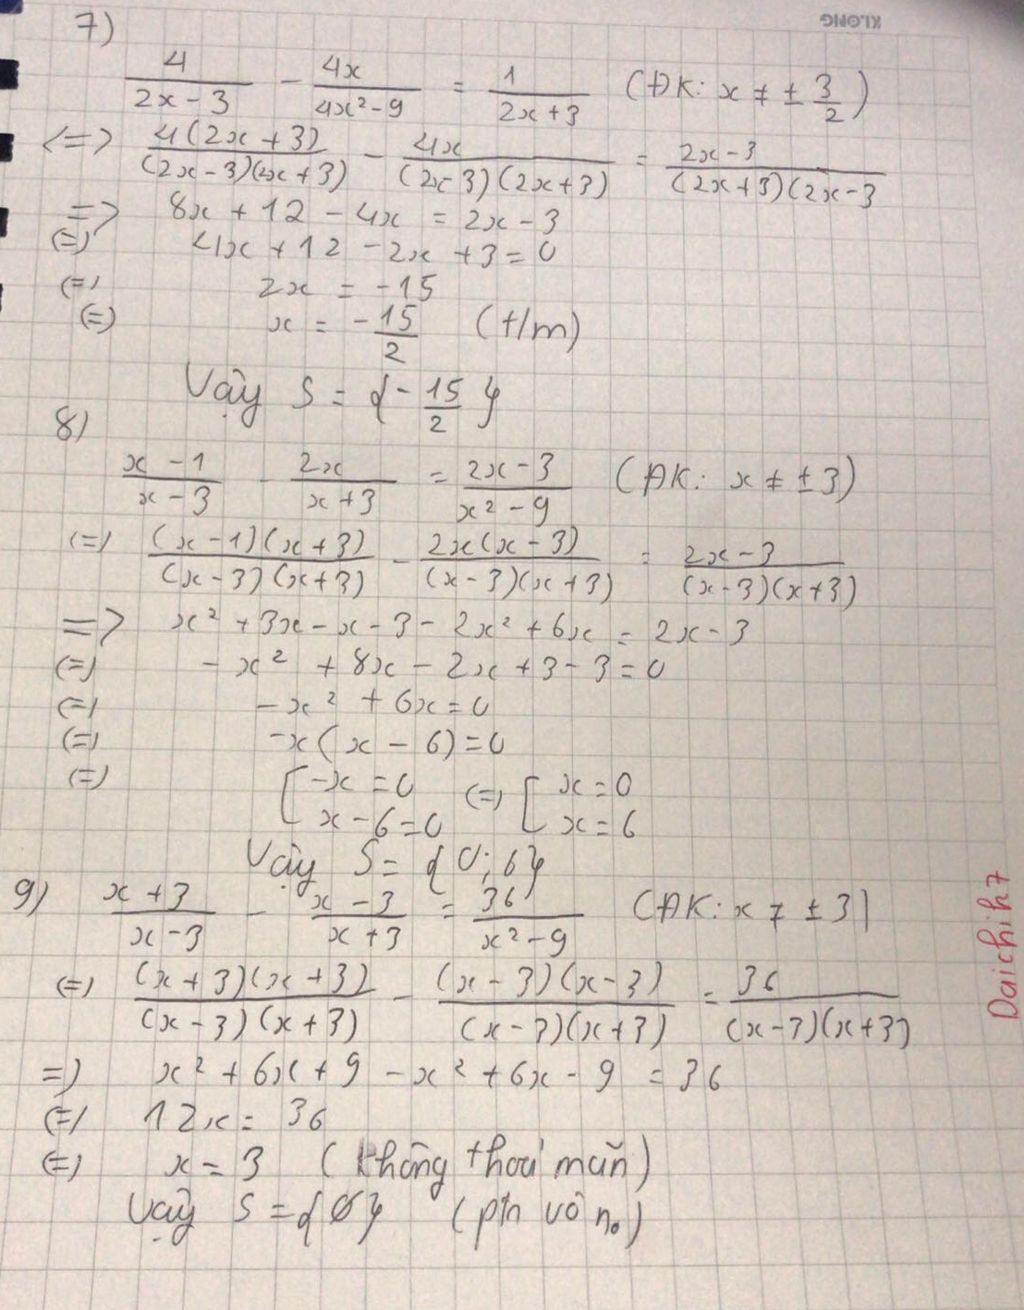 KLONG
7)
4/(2x - 3) - 4x/(4x² - 9) = 1/(2x + 3) (ĐK: x ≠ ± 3/2)
<=> 4(2x + 3)/((2x - 3)(2x + 3)) - 4x/((2x - 3)(2x + 3)) = (2x - 3)/((2x + 3)(2x - 3
=> 8x + 12 - 4x = 2x - 3
(=) 4x + 12 - 2x + 3 = 0
(=) 2x = -15
(=) x = -15/2 (t/m)
Vậy S = {-15/2}
8)
(x - 1)/(x - 3) - 2x/(x + 3) = (2x - 3)/(x² - 9) (ĐK: x ≠ ± 3)
(=) (x - 1)(x + 3)/((x - 3)(x + 3)) - 2x(x - 3)/((x - 3)(x + 3)) = (2x - 3)/((x - 3)(x + 3))
=> x² + 3x - x - 3 - 2x² + 6x = 2x - 3
(=) - x² + 8x - 2x + 3 - 3 = 0
(=) - x² + 6x = 0
(=) -x(x - 6) = 0
(=) [ -x = 0 (=) [ x = 0
x - 6 = 0 x = 6
Vậy S = {0; 6}
9) (x + 3)/(x - 3) - (x - 3)/(x + 3) = 36/(x² - 9) (ĐK: x ≠ ± 3)
(=) (x + 3)(x + 3)/((x - 3)(x + 3)) - (x - 3)(x - 3)/((x - 3)(x + 3)) = 36/((x - 3)(x + 3))
=) x² + 6x + 9 - x² + 6x - 9 = 36
(=) 12x = 36
(=) x = 3 (không thoả mãn)
Vậy S = {∅} (ptn vô n₀)
Daichih7